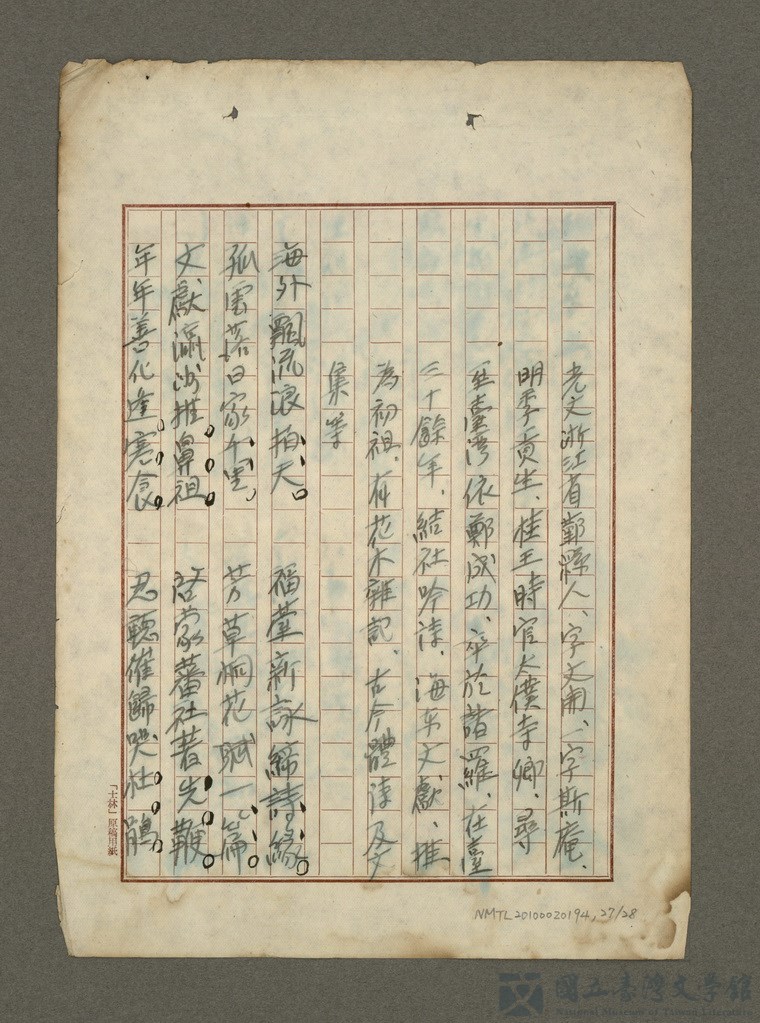 光文浙江省鄞縣人、字文開、一字斯庵、
明季貢生、桂王時官太僕寺卿、尋
至臺灣依鄭成功、卒於諸羅、在臺
三十餘年、結社吟詩、海東文獻、推
為初祖、有花木雜記、古今體詩及文
集等
海外飄流浪拍天。 福臺新詠締詩緣。
孤雲落日家千里。 芳草桐花賦一篇。
文獻瀛洲推鼻祖。 啓蒙蕃社著先鞭。
年年善化逢寒食。 忍聽催歸哭杜鵑。
「士林」原稿用紙
NMTL20100020194, 27/28
國立臺灣文學館
National Museum of Taiwan Literature